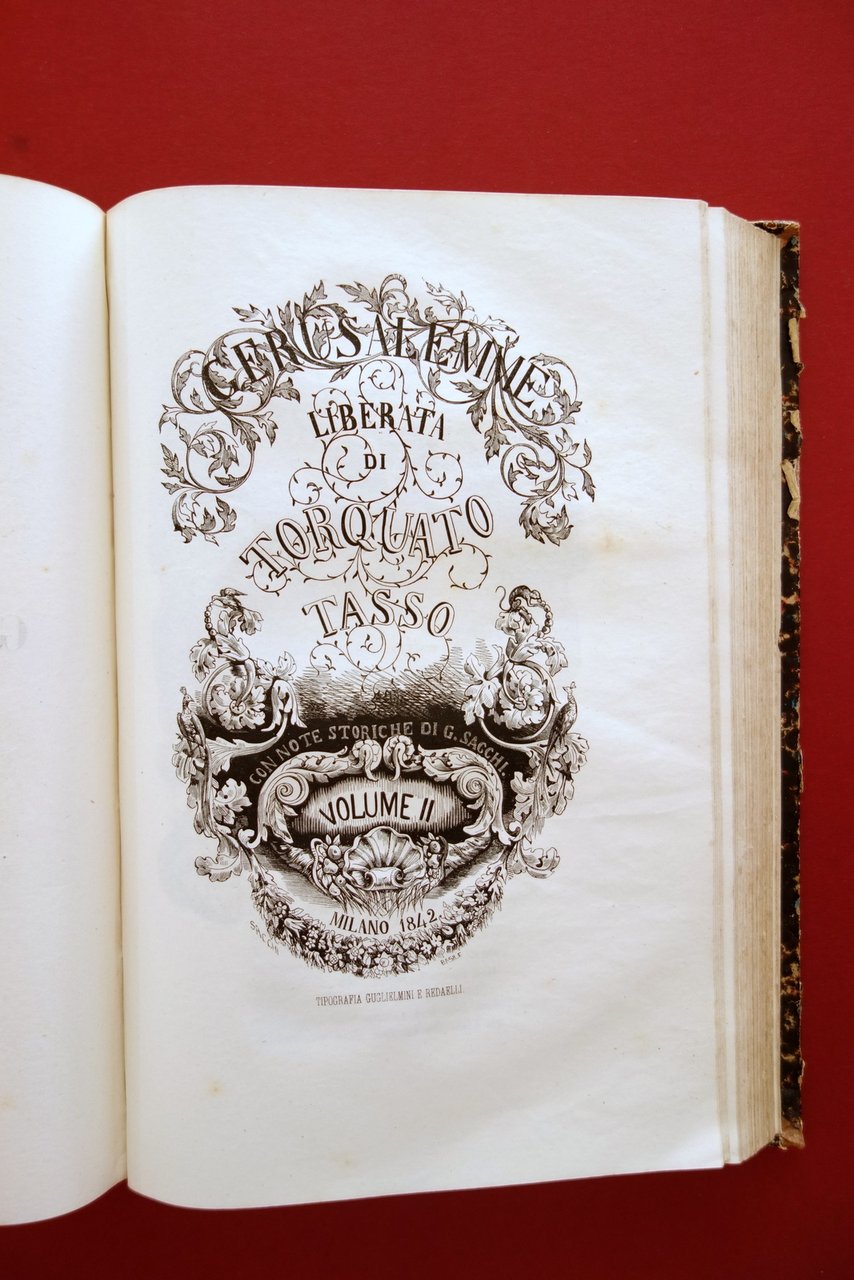 GERUSALEMME
LIBERATA
DI
TORQUATO
TASSO
CON NOTE STORICHE DI G. SACCHI
VOLUME II
MILANO 1842
SACCHI
TIPOGRAFIA GUGLIELMINI E REDAELLI.